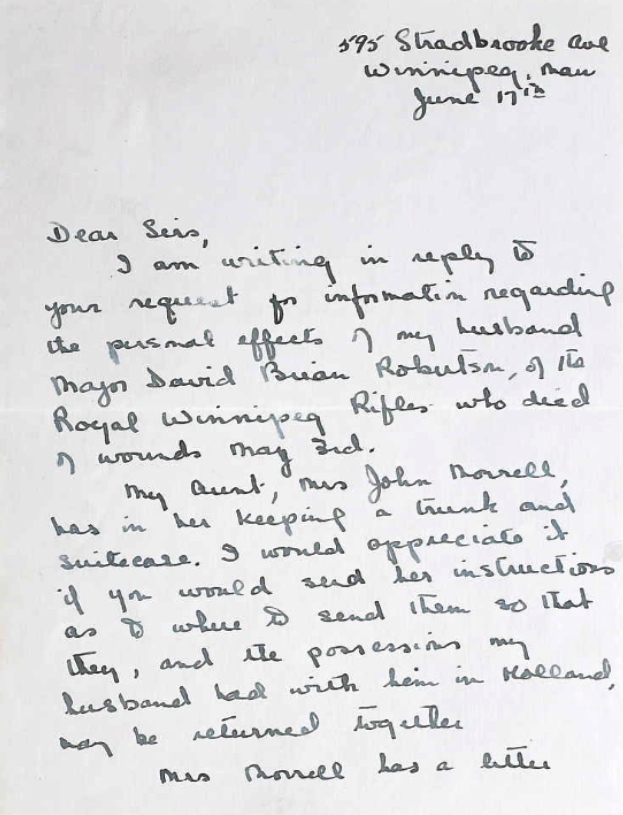 595 Stradbrooke Ave
Winnipeg, Man
June 17th
Dear Sirs,
I am writing in reply to
your request for information regarding
the personal effects of my husband
Major David Brian Robertson, of the
Royal Winnipeg Rifles who died
of wounds May 3rd.
My Aunt, Mrs John Morrell,
has in her keeping a trunk and
suitecase. I would appreciate it
if you would send her instructions
as to where to send them so that
they, and the possessions my
husband had with him in Holland,
may be returned together
Mrs Morrell has a letter